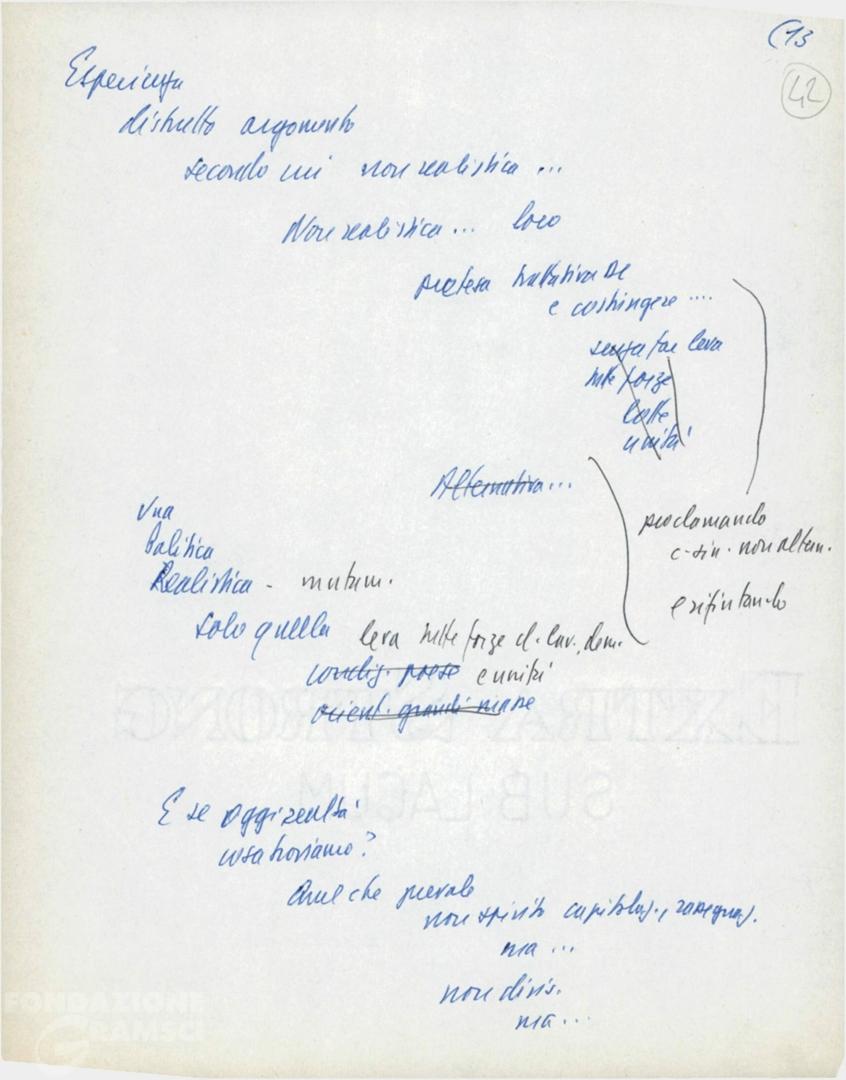 (13
42
Esperienza
distrutto argomento
secondo cui non realistica ...
Non realistica ... loro
pretesa trattativa DC
e costringere ....
senza far leva
tutte forze
lotte
unità
Alternativa ...
proclamando
c-sin. non altern.
e rifiutando
Una
Politica
Realistica -
solo quella leva tutte forze d. lav. dem.
paese e unità
orient. grandi masse
EXTRA STRONG
SUB LACUM
E se oggi realtà
cosa troviamo?
Quel che prevale
non spirito capitolaz., rassegnaz.
ma ...
non divis.
ma ...
FONDAZIONE
GRAMSCI